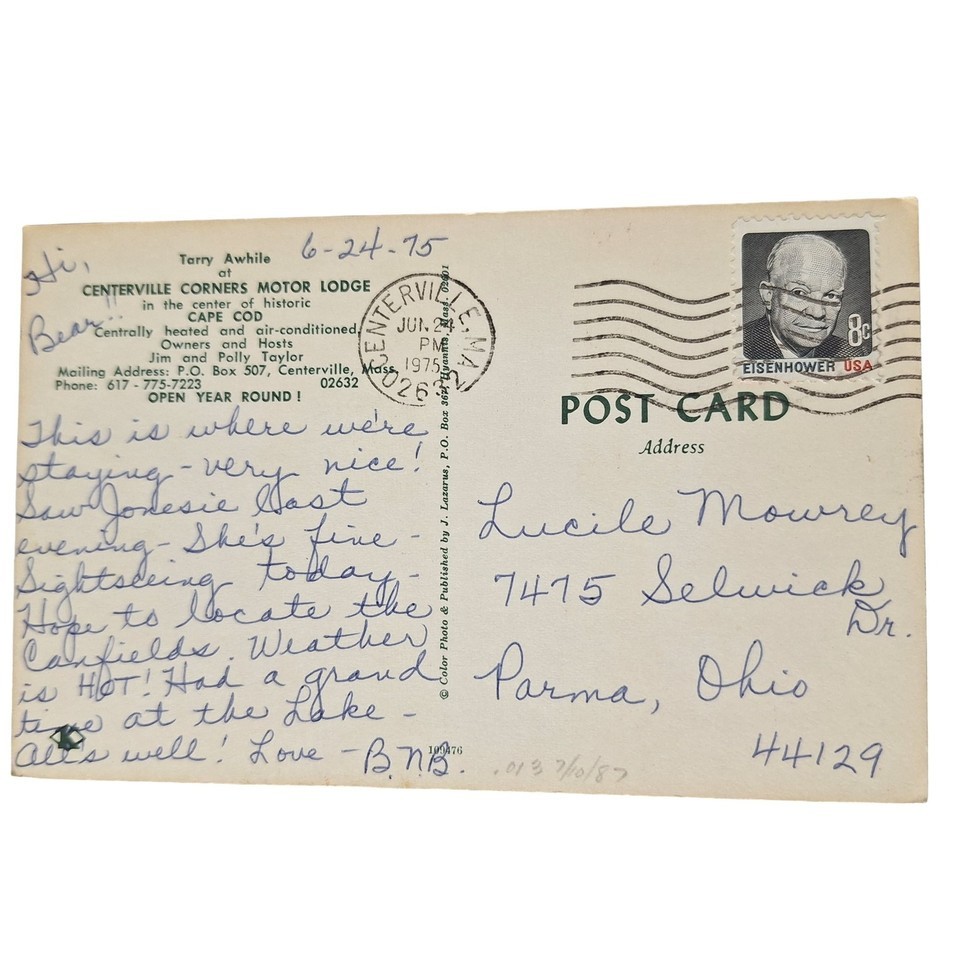 6-24-75
Hi,
Bear!!
Tarry Awhile
at
CENTERVILLE CORNERS MOTOR LODGE
in the center of historic
CAPE COD
Centrally heated and air-conditioned
Owners and Hosts
Jim and Polly Taylor
Mailing Address: P.O. Box 507, Centerville, Mass.
Phone: 617 - 775-7223 02632
OPEN YEAR ROUND!
This is where we're
staying - very nice!
Saw Jonesie last
evening - She's fine -
Sightseeing today -
Hope to locate the
Canfields. Weather
is HOT! Had a grand
time at the Lake -
All's well! Love - B.N.B.
109476
© Color Photo & Published by J. Lazarus, P.O. Box 367, Hyannis, Mass. 02601
CENTERVILLE, MA
JUN 24
PM
1975
02632
8c
EISENHOWER USA
POST CARD
Address
Lucile Mowrey
7475 Selwick
Dr.
Parma, Ohio
44129
.013 7/10/87